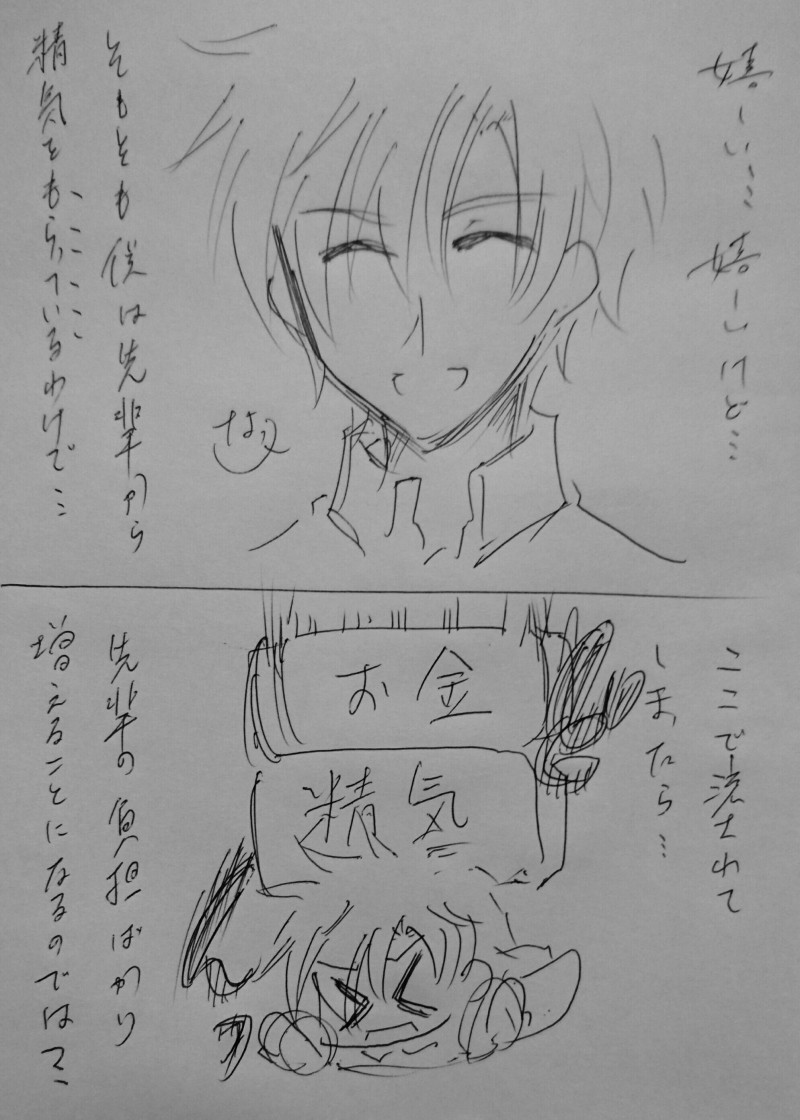 嬉しい…
嬉しいけど…
なっ
そもそも僕は先輩から
精気をもらっているわけで…
ここで流されて
しまったら…
お金
精気
先輩の負担ばかり
増えることになるのでは…